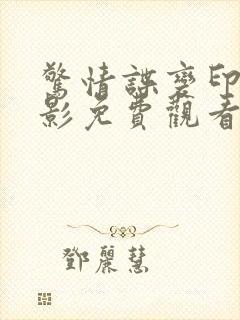 驚情諜變印
影免費觀看
鄧麗慧